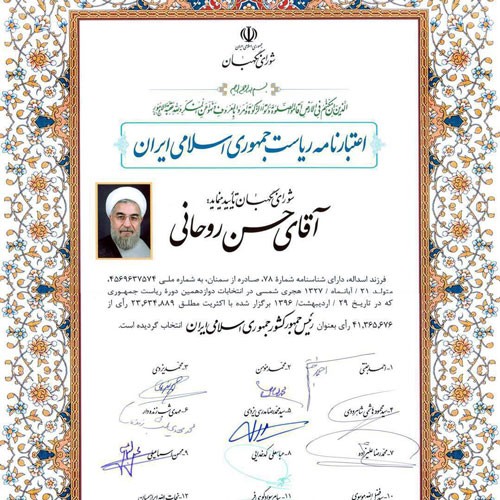 جمهوری اسلامی ایران
شورای نگهبان
بسم الله الرحمن الرحیم
الذین ان مکناهم فی الارض اقاموا الصلوة و آتوا الزکوة و امروا بالمعروف و نهوا عن المنکر و لله عاقبة الامور
اعتبارنامه ریاست جمهوری اسلامی ایران
شورای نگهبان تأیید می‌نماید:
آقای حسن روحانی
فرزند اسداله، دارای شناسنامه شمارهٔ ۷۸، صادره از سمنان، به شماره ملی ۴۵۶۹۶۳۷۵۷۴،
متولد ۲۱ / آبانماه / ۱۳۲۷ هجری شمسی در انتخابات دوازدهمین دورهٔ ریاست جمهوری
که در تاریخ ۲۹ / اردیبهشت/ ۱۳۹۶ برگزار شده با اکثریت مطلق ۲۳,۶۳۴,۸۸۹ رأی از
۴۱,۳۶۵,۶۷۶ رأی بعنوان رئیس جمهور کشور جمهوری اسلامی ایران انتخاب گردیده است.
۱- احمد جنتی ۲- محمد مؤمن ۳- محمد یزدی
۴- سید محمود هاشمی شاهرودی ۵- سید محمدرضا مدرسی یزدی ۶- مهدی شب زنده‌دار
۷- محمدرضا علیزاده ۸- عباسعلی کدخدایی ۹- محسن اسماعیلی
۱۰- سید فضل الله موسوی ۱۱- سام سوادکوهی فر ۱۲- نجات الله ابراهیمیان